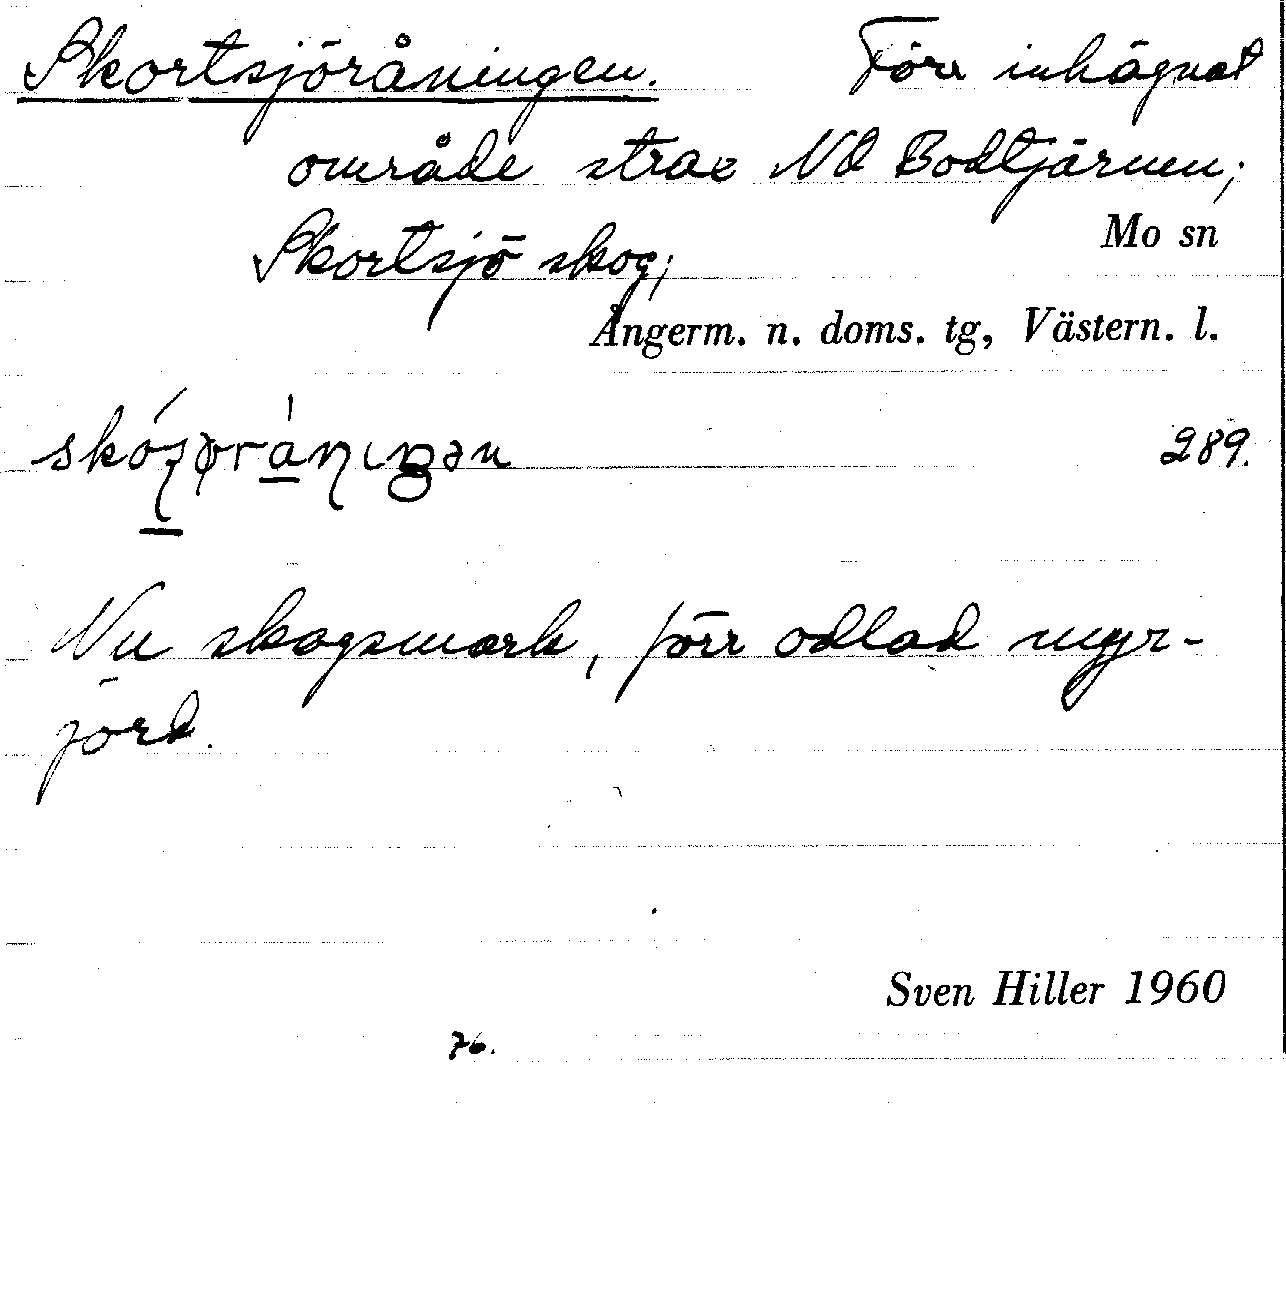 Skortsjöråningen. Förr inhägnat
område strax NO Bodtjärnen;
Mo sn
Skortsjö skog;
Ångerm. n. doms. tg, Västern. l.
289.
Nu skogsmark, förr odlad myr-
jord.
Sven Hiller 1960
76.